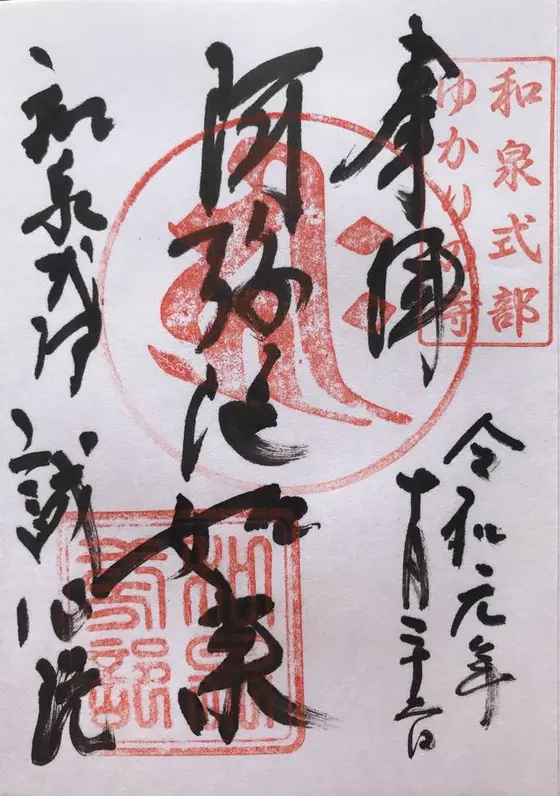 和泉式部
ゆかりの寺
奉拝
令和元年
十月二十三日
阿弥陀如来
和泉式部 誠心院
和泉
式部